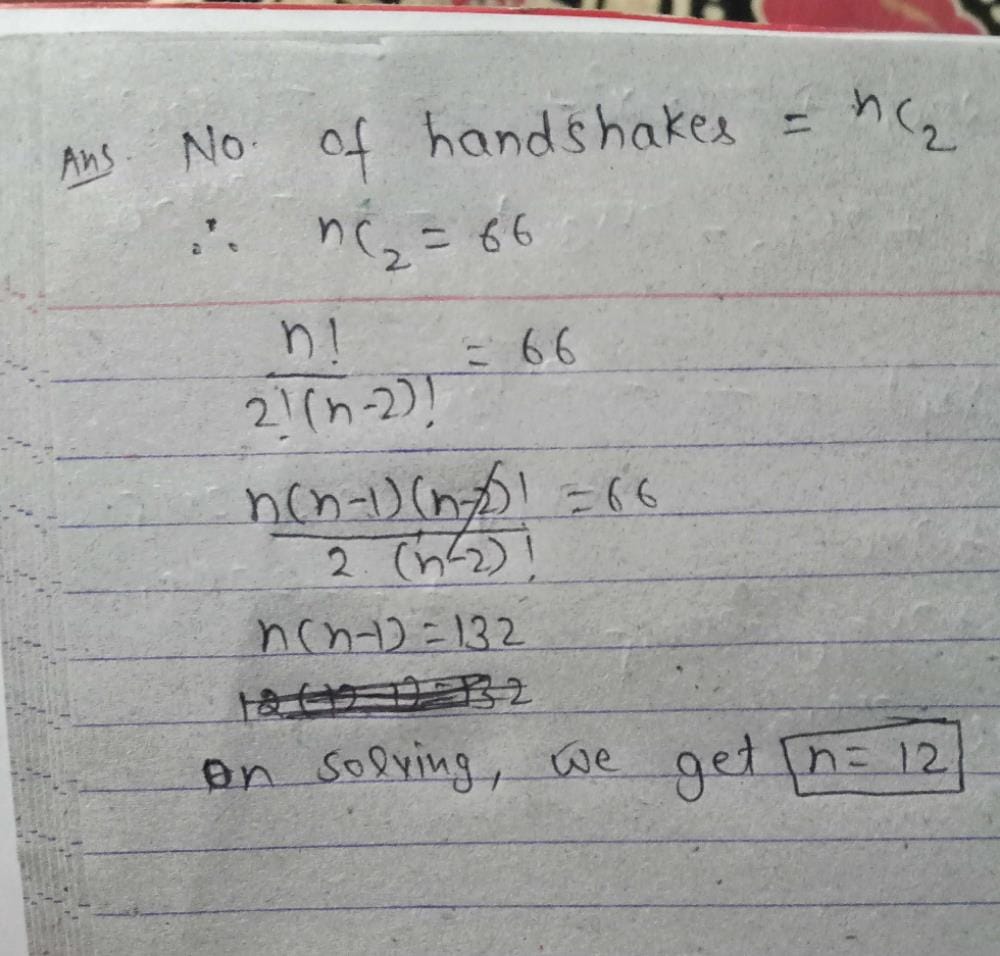 Ans. No. of handshakes = nC₂
∴ nC₂ = 66
n! / 2!(n-2)! = 66
n(n-1)(n-2)! / 2.(n-2)! = 66
n(n-1) = 132
On solving, we get n = 12